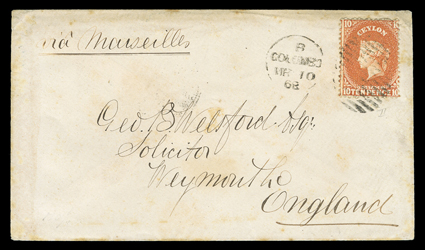 via Marseilles
B
COLOMBO
MR 10
68
CEYLON
10 TEN PENCE 10
Geo. B. Welsford Esqr
Solicitor
Weymouth
England